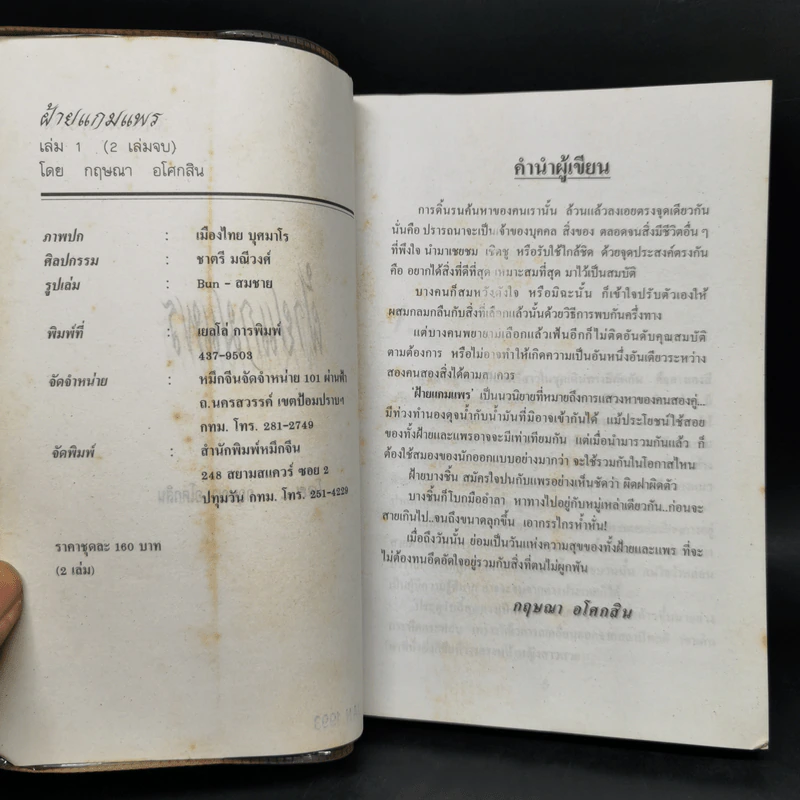 ฝ้ายแกมแพร
เล่ม 1 (2 เล่มจบ)
โดย กฤษณา อโศกสิน
ภาพปก : เมืองไทย บุศมาโร
ศิลปกรรม : ชาตรี มณีวงศ์
รูปเล่ม : Bun - สมชาย
พิมพ์ที่ : เยลโล่ การพิมพ์
437-9503
จัดจำหน่าย : หมึกจีนจัดจำหน่าย 101 ผ่านฟ้า
ถ.นครสวรรค์ เขตป้อมปราบฯ
กทม. โทร. 281-2749
จัดพิมพ์ : สำนักพิมพ์หมึกจีน
248 สยามสแควร์ ซอย 2
ปทุมวัน กทม. โทร. 251-4229
ราคาชุดละ 160 บาท
(2 เล่ม)
คำนำผู้เขียน
การดิ้นรนค้นหาของคนเรานั้น ล้วนแล้วลงเอยตรงจุดเดียวกัน
นั่นคือ ปรารถนาจะเป็นเจ้าของบุคคล สิ่งของ ตลอดจนสิ่งมีชีวิตอื่น ๆ
ที่พึงใจ นำมาเชยชม เชิดชู หรือรับใช้ใกล้ชิด ด้วยจุดประสงค์ตรงกัน
คือ อยากได้สิ่งที่ดีที่สุด เหมาะสมที่สุด มาไว้เป็นสมบัติ
บางคนก็สมหวังดังใจ หรือมิฉะนั้น ก็เข้าใจปรับตัวเองให้
ผสมกลมกลืนกับสิ่งที่เลือกแล้วนั้นด้วยวิธีการพบกันครึ่งทาง
แต่บางคนพยายามเลือกแล้วเฟ้นอีกก็ไม่ติดอันดับคุณสมบัติ
ตามต้องการ หรือไม่อาจทำให้เกิดความเป็นอันหนึ่งอันเดียวระหว่าง
สองคนสองสิ่งได้ตามสมควร
'ฝ้ายแกมแพร' เป็นนวนิยายที่หมายถึงการแสวงหาของคนสองคู่...
มีท่วงทำนองดุจน้ำกับน้ำมันที่มิอาจเข้ากันได้ แม้ประโยชน์ใช้สอย
ของทั้งฝ้ายและแพรอาจจะมีเท่าเทียมกัน แต่เมื่อนำมารวมกันแล้ว ก็
ต้องใช้สมองของนักออกแบบอย่างมากว่า จะใช้รวมกันในโอกาสไหน
ฝ้ายบางชิ้น สมัครใจปนกับแพรอย่างเห็นชัดว่า ผิดฝาผิดตัว
บางชิ้นก็โบกมืออำลา หาทางไปอยู่กับหมู่เหล่าเดียวกัน..ก่อนจะ
สายเกินไป..จนถึงขนาดลุกขึ้น เอากรรไกรห้ำหั่น!
เมื่อถึงวันนั้น ย่อมเป็นวันแห่งความสุขของทั้งฝ้ายและแพร ที่จะ
ไม่ต้องทนอึดอัดใจอยู่ร่วมกับสิ่งที่ตนไม่ผูกพัน
กฤษณา อโศกสิน